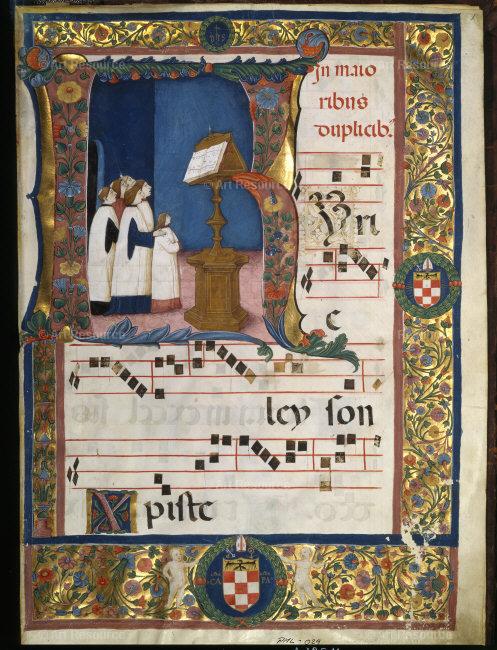 In maio
ribus
duplicib'
Yri
e
ley son
Xpiste
CA PA
PML - 029
© Art Resource